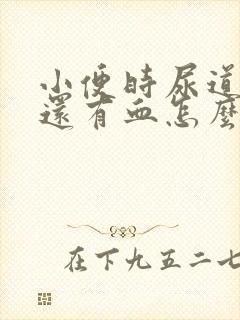 小便時尿道
還有血怎麼
在下九五二七